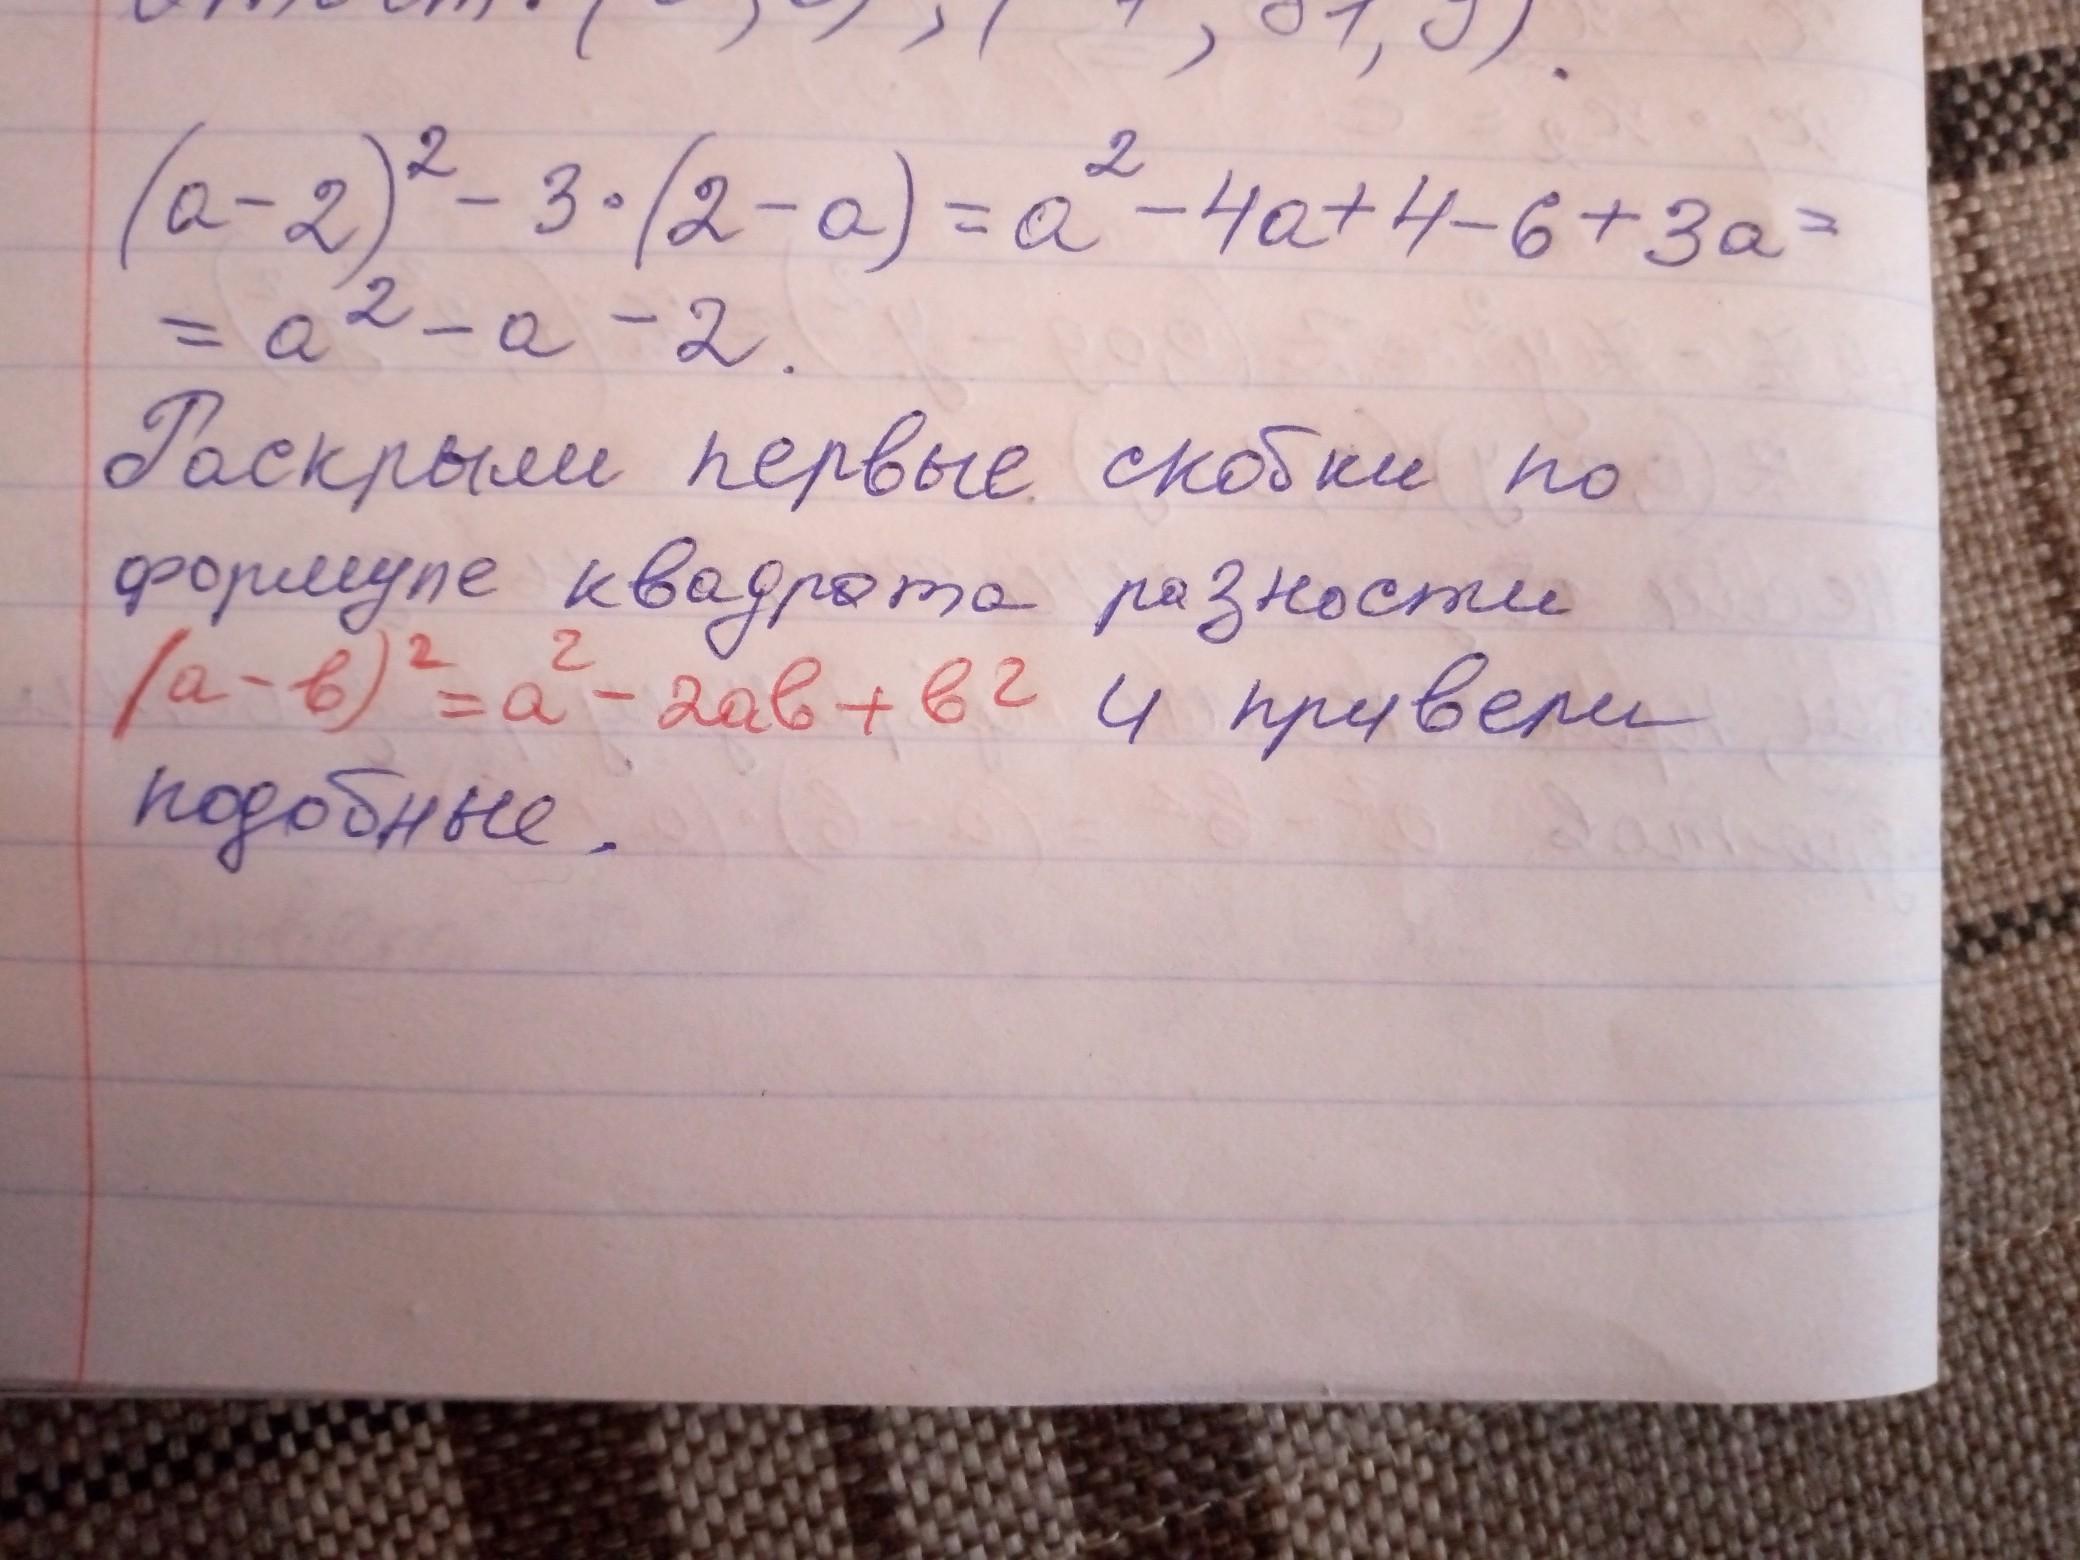 (a-2)² - 3·(2-a) = a² - 4a + 4 - 6 + 3a =
= a² - a - 2.
Раскрыли первые скобки по
формуле квадрата разности
(а-в)² = а² - 2ав + в² и привели
подобные.